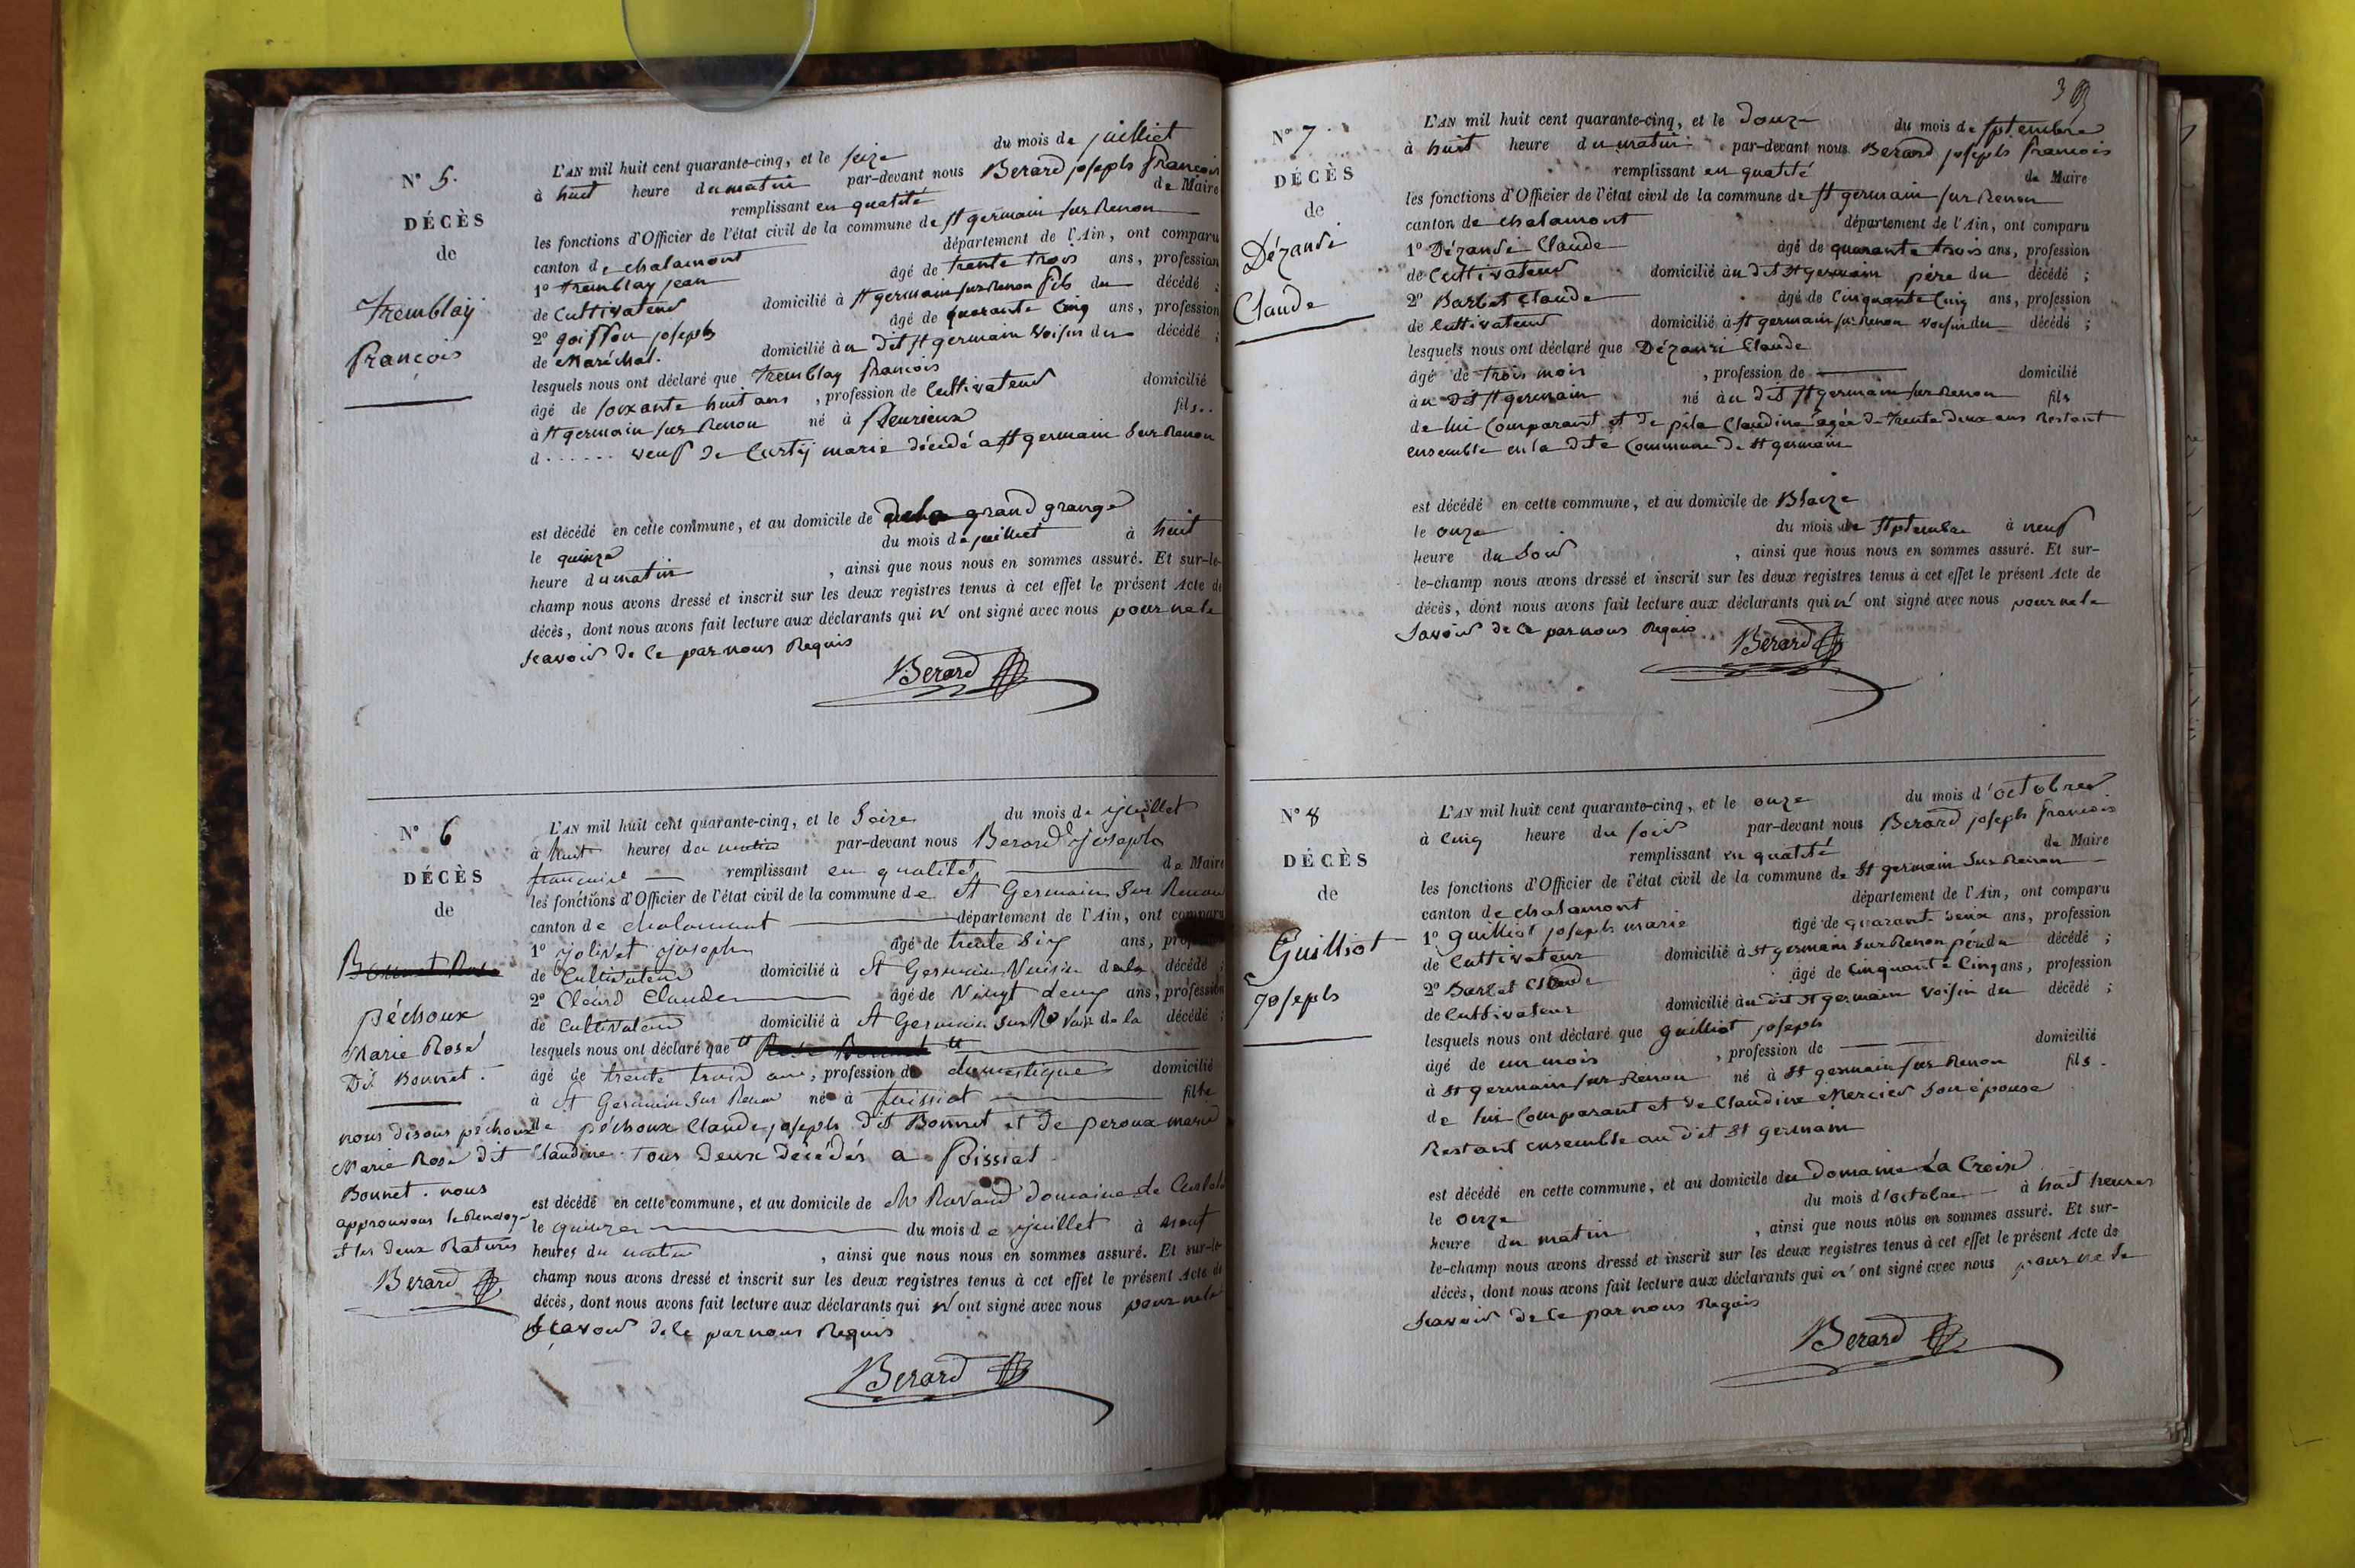 N° 5.
DÉCÈS
de
Tremblay
François
L'AN mil huit cent quarante-cinq, et le seize du mois de juilliet
à huit heure du matin par-devant nous Berard joseph François
remplissant en quatité de Maire
les fonctions d'Officier de l'état civil de la commune de st germain sur Renon
canton de chalamont département de l'Ain, ont comparu
1° tremblay jean âgé de trente trois ans, profession
de Cultivateur domicilié à st germain sur Renon fils du décédé ;
2° goiffon joseph âgé de quarante Cinq ans, profession
de Maréchal. domicilié au dit st germain voisin du décédé ;
lesquels nous ont déclaré que tremblay François
âgé de soixante huit ans, profession de Cultivateur domicilié
à st germain sur Renon né à fleurieux fils..
d...... veuf de Curty marie décédé a st germain sur Renon
est décédé en cette commune, et au domicile de grand grange
le quinze du mois de juilliet à huit
heure du matin, ainsi que nous nous en sommes assuré. Et sur-le-
champ nous avons dressé et inscrit sur les deux registres tenus à cet effet le présent Acte de
décès, dont nous avons fait lecture aux déclarants qui n'ont signé avec nous pour ne le
scavoir de ce par nous Requis
Berard
N° 6
DÉCÈS
de
Bonnet Rose
péchoux
Marie Rose
Dit Bonnet.
nous disons péchoux
Marie Rose dit
Bonnet. nous
approuvons le Renvoy
et les deux Ratures
Berard
L'AN mil huit cent quarante-cinq, et le Seize du mois de juillet
à huit heures du matin par-devant nous Berard joseph
françois remplissant en qualité de Maire
les fonctions d'Officier de l'état civil de la commune de St Germain Sur Renon
canton de chalamont département de l'Ain, ont comparu
1° jolivet joseph âgé de trente Six ans, profession
de Cultivateur domicilié à St Germain Voisin de la décédé ;
2° Cléard Claude âgé de Vingt deux ans, profession
de Cultivateur domicilié à St Germain Sur R Vois. de la décédé ;
lesquels nous ont déclaré que Rose Bonnet
âgé de trente trois ans, profession de domestique domicilié
à St Germain Sur Renon né à foissiat fille
de péchoux Claude joseph dit Bonnet et de peroux marie
Claudine. Tous deux décédés a Foissiat.
est décédé en cette commune, et au domicile de Mr Ravaud domaine de
le quinze du mois de juillet à neuf
heures du matin, ainsi que nous nous en sommes assuré. Et sur-le-
champ nous avons dressé et inscrit sur les deux registres tenus à cet effet le présent Acte de
décès, dont nous avons fait lecture aux déclarants qui n'ont signé avec nous pour ne le
scavoir de ce par nous Requis
Berard
N° 7
DÉCÈS
de
Dézansi
Claude
L'AN mil huit cent quarante-cinq, et le Douze du mois de septembre
à huit heure du matin par-devant nous Berard joseph françois
remplissant en quatité de Maire
les fonctions d'Officier de l'état civil de la commune de st germain sur Renon
canton de chalamont département de l'Ain, ont comparu
1° Dézansi Claude âgé de quarante trois ans, profession
de Cultivateur domicilié au dit st germain père du décédé ;
2° Barbet Claude âgé de Cinquante Cinq ans, profession
de Cultivateur domicilié à st germain sur Renon voisin du décédé ;
lesquels nous ont déclaré que Dézansi Claude
âgé de trois mois, profession de domicilié
au dit st germain né au dit st germain sur Renon fils
de lui Comparant et de pila Claudine âgée de trente deux ans Restant
ensemble en la dite Commune de st germain
est décédé en cette commune, et au domicile de Blaize
le onze du mois de septembre à neuf
heure du soir, ainsi que nous nous en sommes assuré. Et sur-
le-champ nous avons dressé et inscrit sur les deux registres tenus à cet effet le présent Acte de
décès, dont nous avons fait lecture aux déclarants qui n'ont signé avec nous pour ne le
savoir de ce par nous Requis
Berard
N° 8
DÉCÈS
de
Guilliot
joseph
L'AN mil huit cent quarante-cinq, et le onze du mois d'octobre
à Cinq heure du soir par-devant nous Berard joseph françois
remplissant en quatité de Maire
les fonctions d'Officier de l'état civil de la commune de St germain Sur Renon
canton de chalamont département de l'Ain, ont comparu
1° guilliot joseph marie âgé de quarante deux ans, profession
de Cultivateur domicilié à St germain Sur Renon père du décédé ;
2° Barbet Claude âgé de Cinquante Cinq ans, profession
de Cultivateur domicilié au dit St germain voisin du décédé ;
lesquels nous ont déclaré que guilliot joseph
âgé de un mois, profession de domicilié
à St germain sur Renon né à St germain sur Renon fils.
de lui Comparant et de Claudine Mercier son épouse
Restant ensemble au dit St germain
est décédé en cette commune, et au domicile du Domaine La Croix
le onze du mois d'octobre à huit heures
heure du matin, ainsi que nous nous en sommes assuré. Et sur-
le-champ nous avons dressé et inscrit sur les deux registres tenus à cet effet le présent Acte de
décès, dont nous avons fait lecture aux déclarants qui n'ont signé avec nous pour ne le
scavoir de ce par nous Requis
Berard